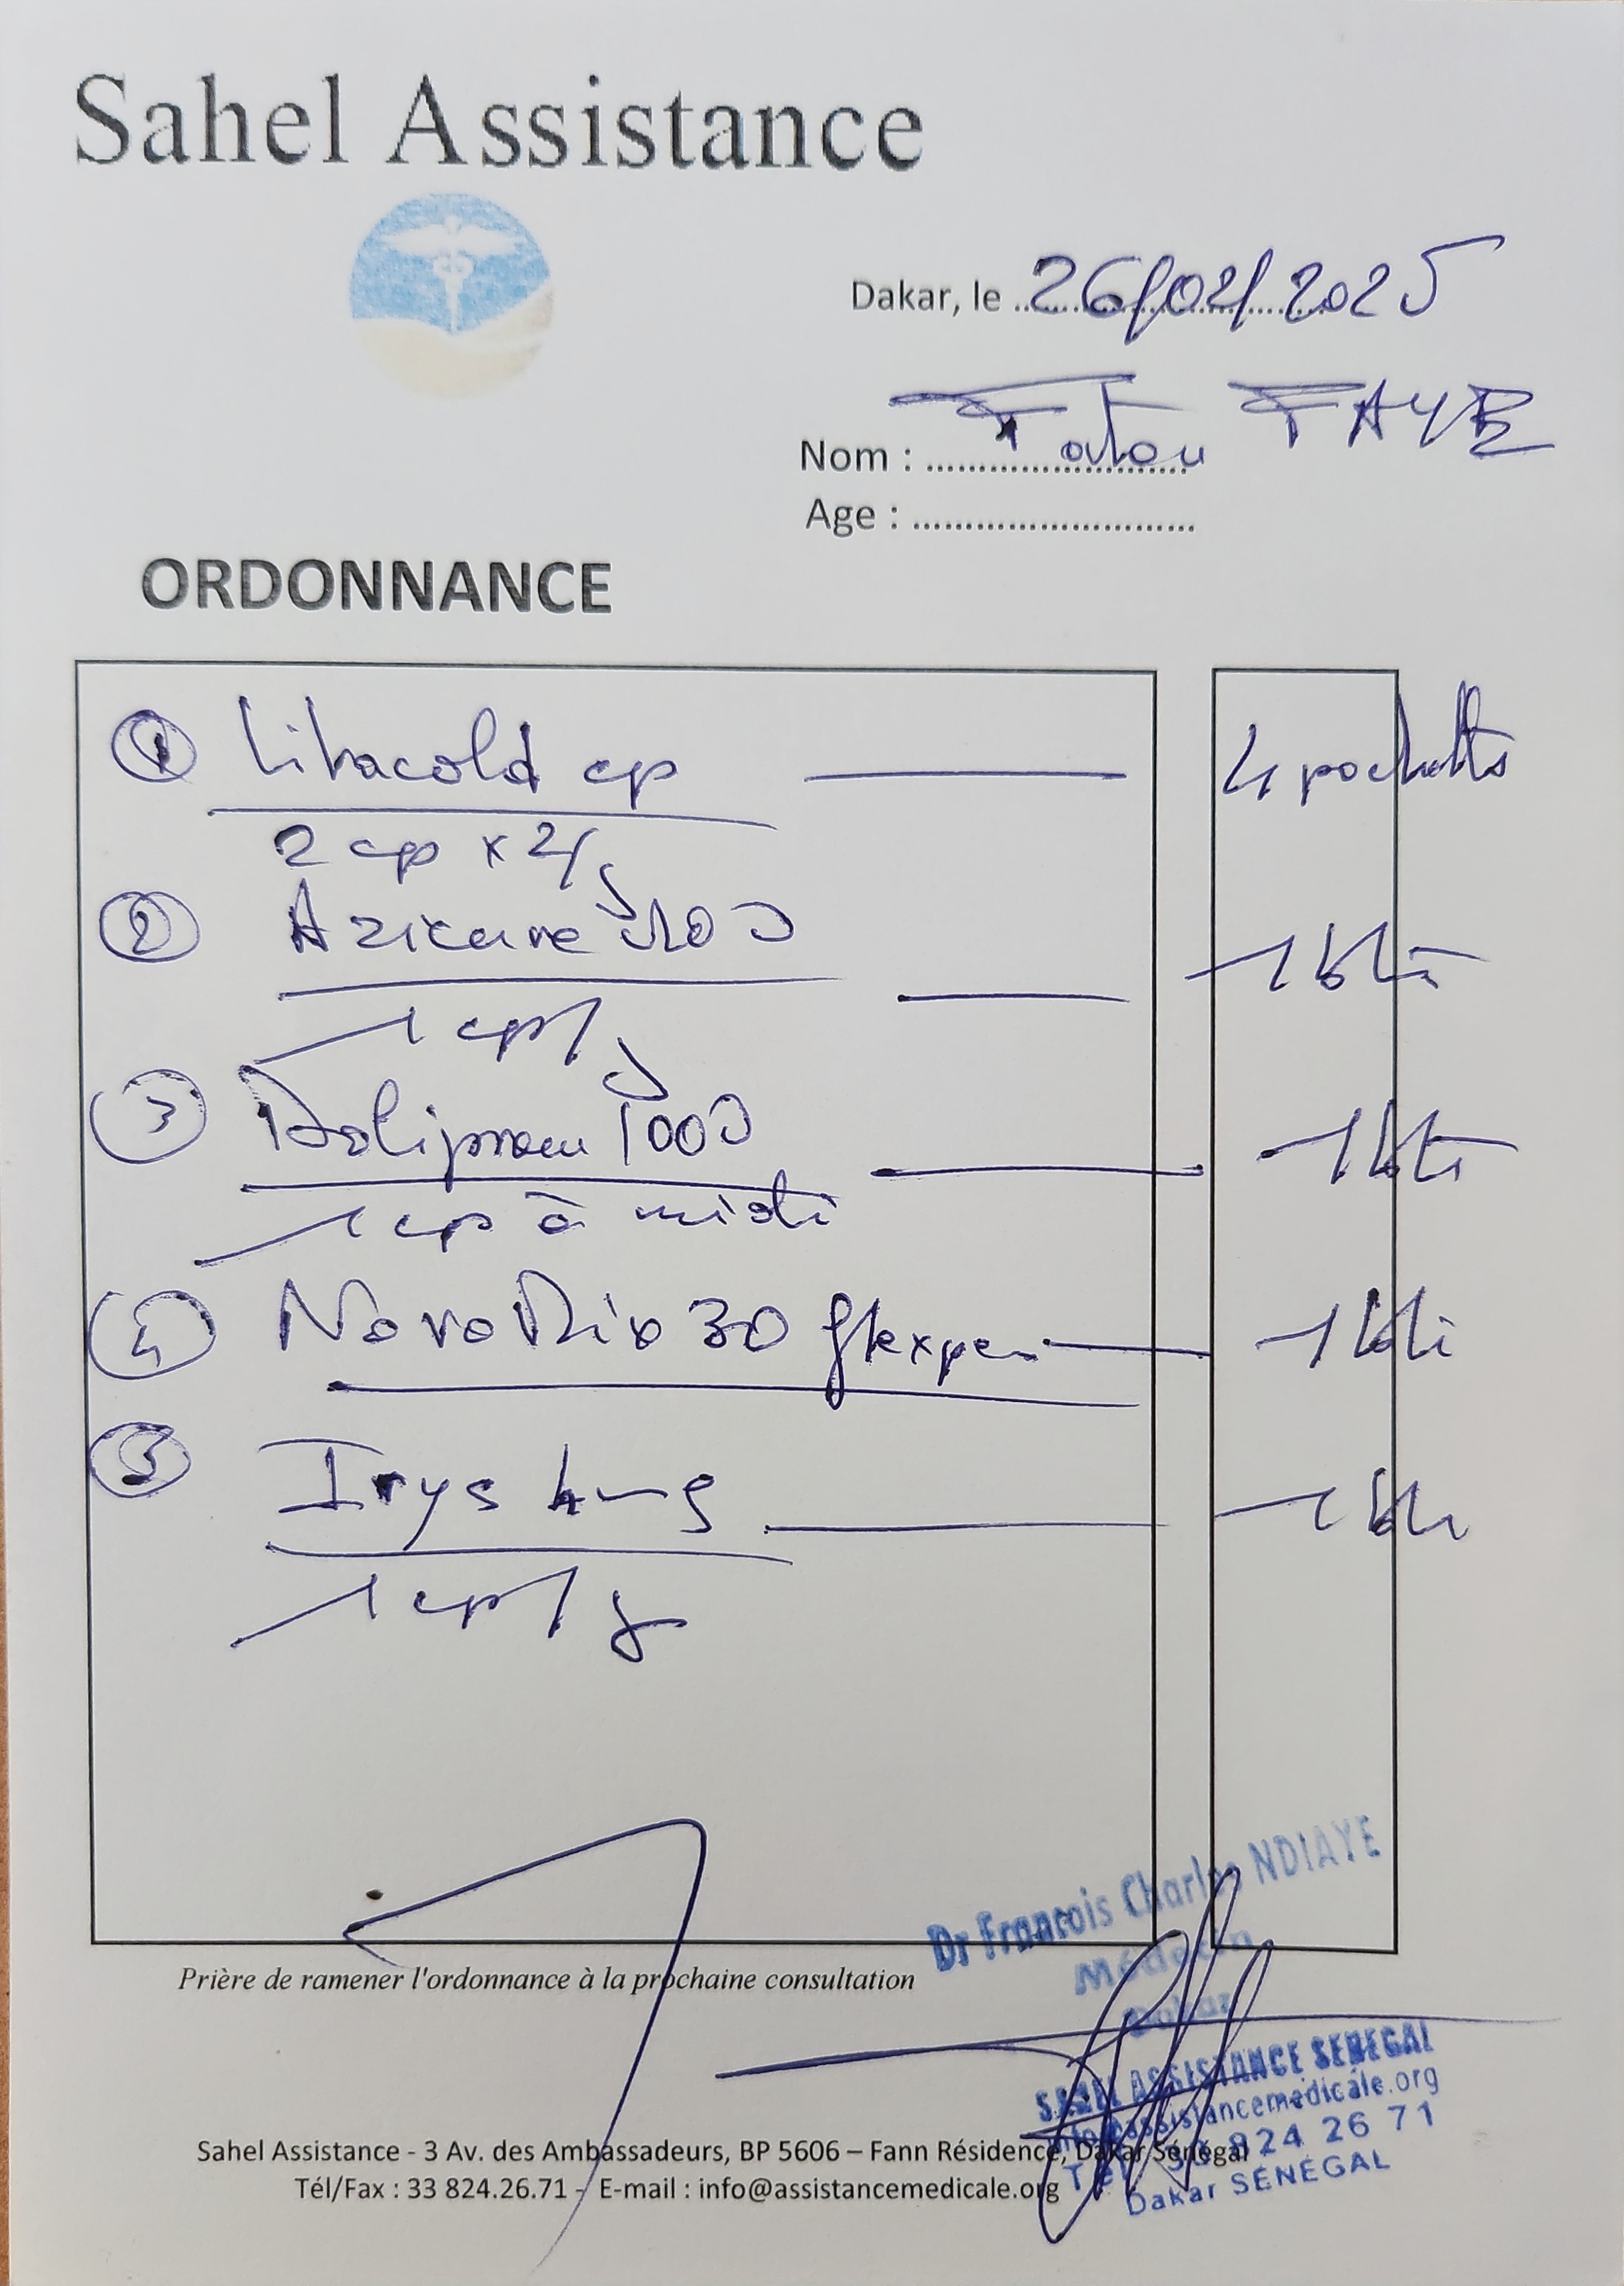 Sahel Assistance
Dakar, le 26/02/2025
Nom : Fatou FAYE
Age :
ORDONNANCE
① Litacold cp 4 pochetts
2 cp x 2/j
② Azicure 500 1 bte
1 cp/j
③ Doliprane 1000 1 bte
1 cp à midi
④ NovoMix 30 flexpen 1 bte
⑤ Irys 4mg 1 bte
1 cp/j
Dr Francois Charles NDIAYE
Médecin
Dakar
Prière de ramener l'ordonnance à la prochaine consultation
SAHEL ASSISTANCE SENEGAL
info@assistancemedicale.org
Tel 33 824 26 71
Dakar SENEGAL
Sahel Assistance - 3 Av. des Ambassadeurs, BP 5606 – Fann Résidence, Dakar Sénégal
Tél/Fax : 33 824.26.71 - E-mail : info@assistancemedicale.org